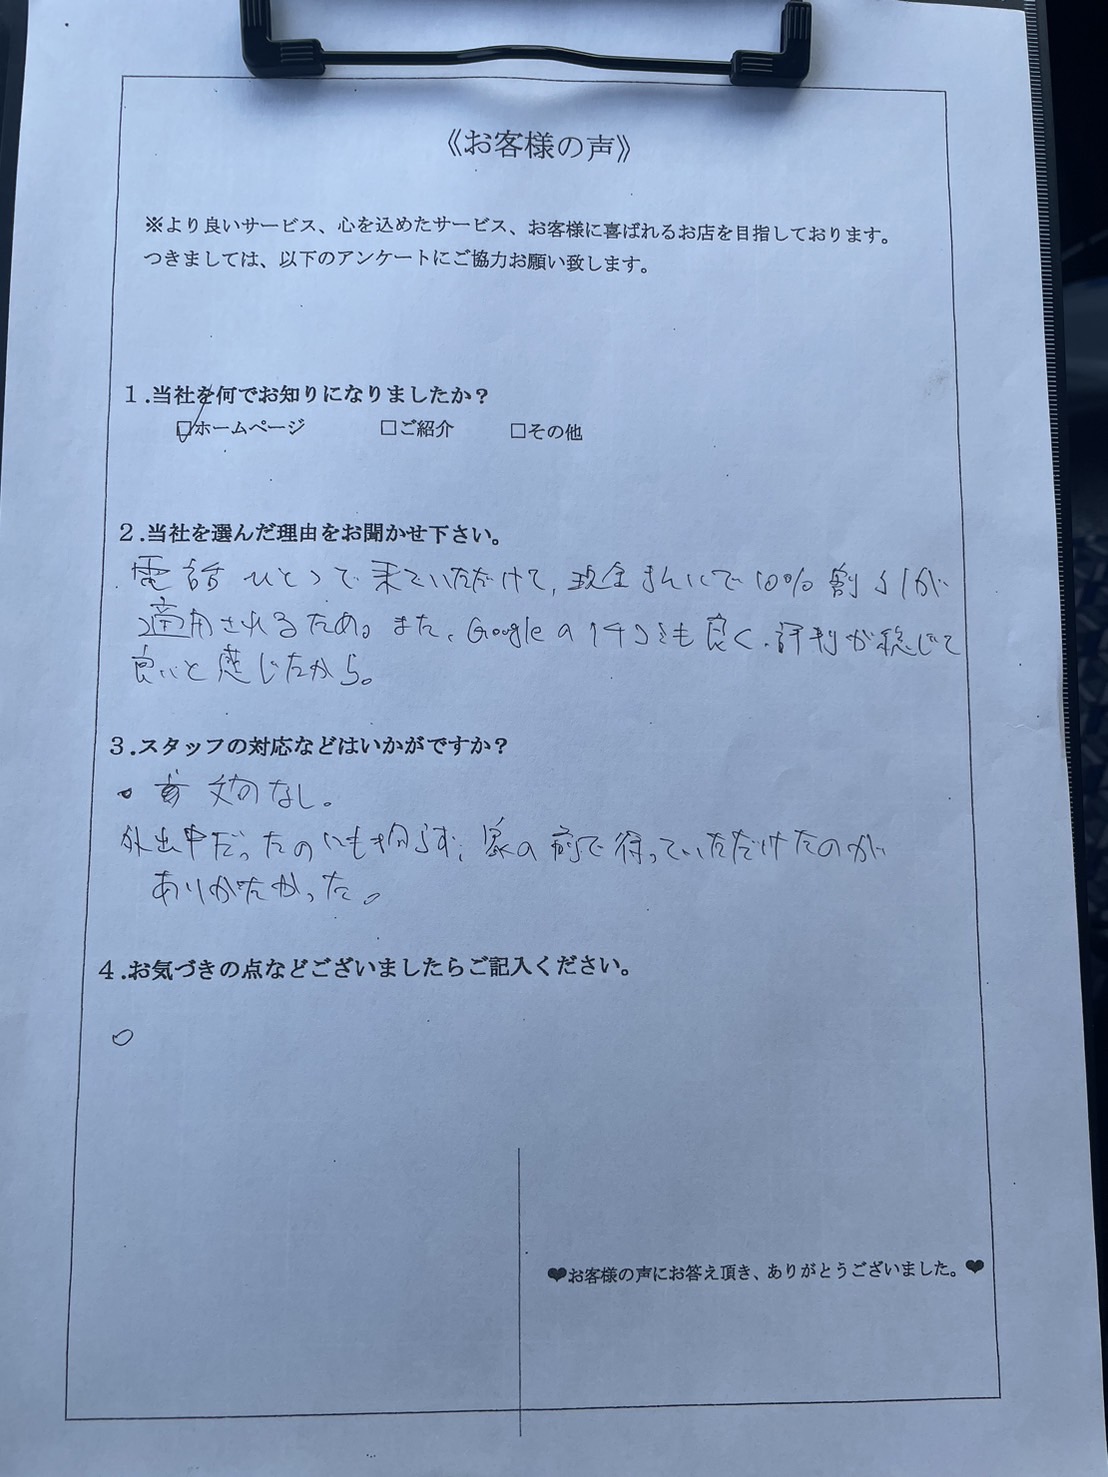 《お客様の声》
※より良いサービス、心を込めたサービス、お客様に喜ばれるお店を目指しております。
つきましては、以下のアンケートにご協力お願い致します。
1.当社を何でお知りになりましたか?
☑ホームページ □ご紹介 □その他
2.当社を選んだ理由をお聞かせ下さい。
電話ひとつで来ていただけて、現金まんいで10%割引が
適用されるため。また、Googleの口コミも良く、評判が総じて
良いと感じたから。
3.スタッフの対応などはいかがですか?
・文句なし。
外出中だったのにも拘らず、家の前で待っていただけたのが
ありがたかった。
4.お気づきの点などございましたらご記入ください。
❤お客様の声にお答え頂き、ありがとうございました。❤